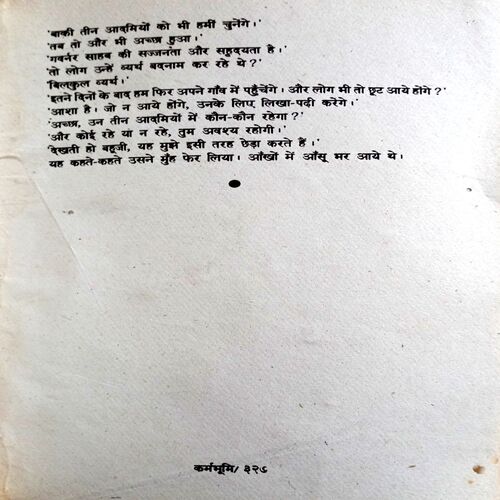 'बाकी तीन आदमियों को भी हमीं चुनेंगे।'
'तब तो और भी अच्छा हुआ।'
'गवर्नर साहब की सज्जनता और सहृदयता है।'
'तो लोग उन्हें व्यर्थ बदनाम कर रहे थे?'
'बिलकुल व्यर्थ।'
'इतने दिनों के बाद हम फिर अपने गाँव में पहुँचेंगे। और लोग भी तो छूट आये होंगे?'
'आशा है। जो न आये होंगे, उनके लिए लिखा-पढ़ी करेंगे।'
'अच्छा, उन तीन आदमियों में कौन-कौन रहेगा?'
'और कोई रहे या न रहे, तुम अवश्य रहोगी।'
'देखती हो बहूजी, यह मुझे इसी तरह छेड़ा करते हैं।'
यह कहते-कहते उसने मुँह फेर लिया। आँखों में आँसू भर आये थे।
●
कर्मभूमि/ ३२७